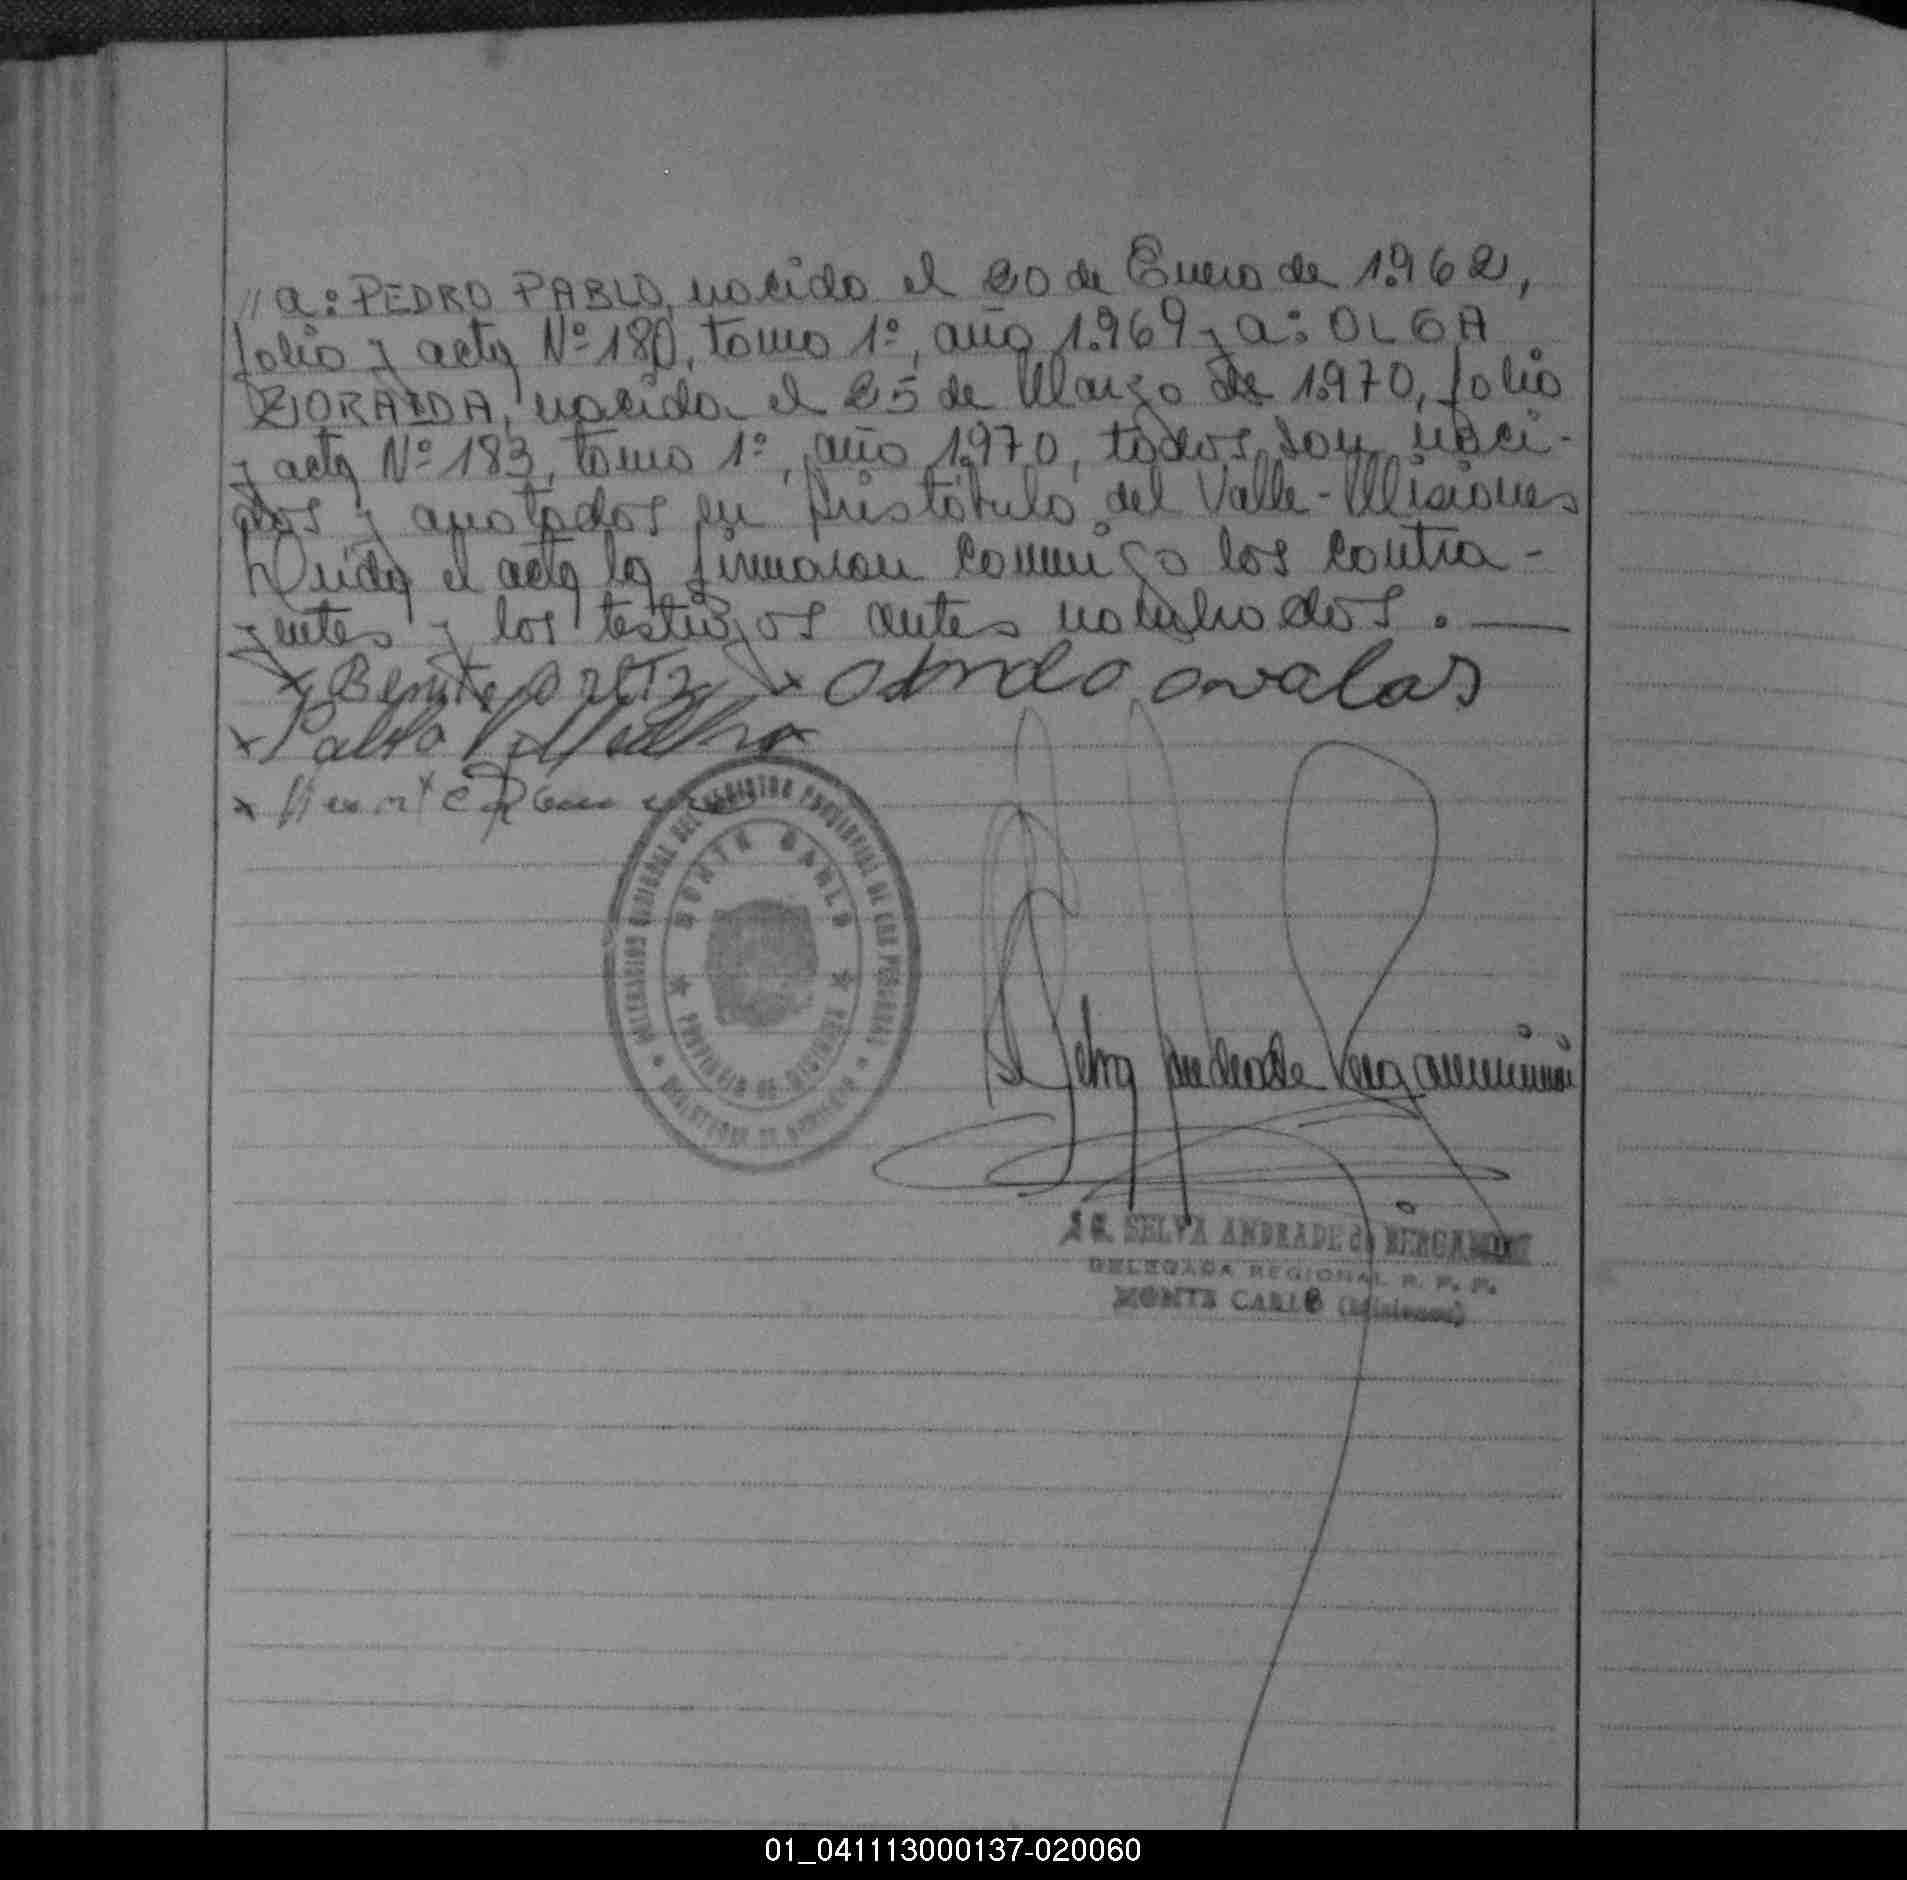 // a: PEDRO PABLO, nacido el 20 de Enero de 1.962,
folio y acta Nº 180, tomo 1º, año 1.969 y a: OLGA
ZORAIDA, nacida el 25 de Marzo de 1.970, folio
y acta Nº 183, tomo 1º, año 1.970, todos son naci-
dos y anotados en Aristóbulo del Valle - Misiones
Leida el acta la firmaron conmigo los contra-
yentes y los testigos antes nombrados. —
x Benite x ovalas
x Pablo
x
DELEGACION REGIONAL DEL REGISTRO PROVINCIAL DE LAS PERSONAS
MONTE CARLO
PROVINCIA DE MISIONES
MINISTERIO DE
Selva Andrade
SELVA ANDRADE de BERGAMINI
DELEGADA REGIONAL R. P. P.
MONTE CARLO (Misiones)
01_041113000137-020060